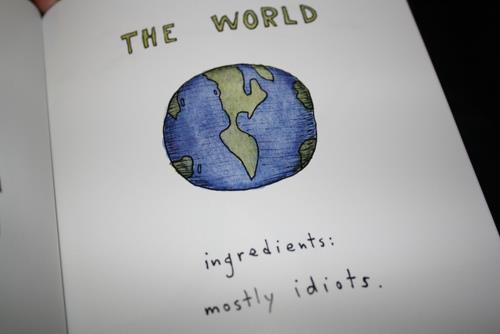 THE WORLD
ingredients:
mostly idiots.